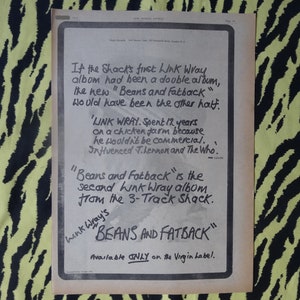 If the Shack's first Link Wray
album had been a double album,
the new "Beans and Fatback"
would have been the other half.
LINK WRAY. Spent 12 years
on a chicken farm because
he wouldn't be commercial.
Influenced J. Lennon and The Who.
"Beans and Fatback" is the
second Link Wray album
from the 3-Track Shack.
Link Wray's
"BEANS AND FATBACK"
Available ONLY on the Virgin Label.